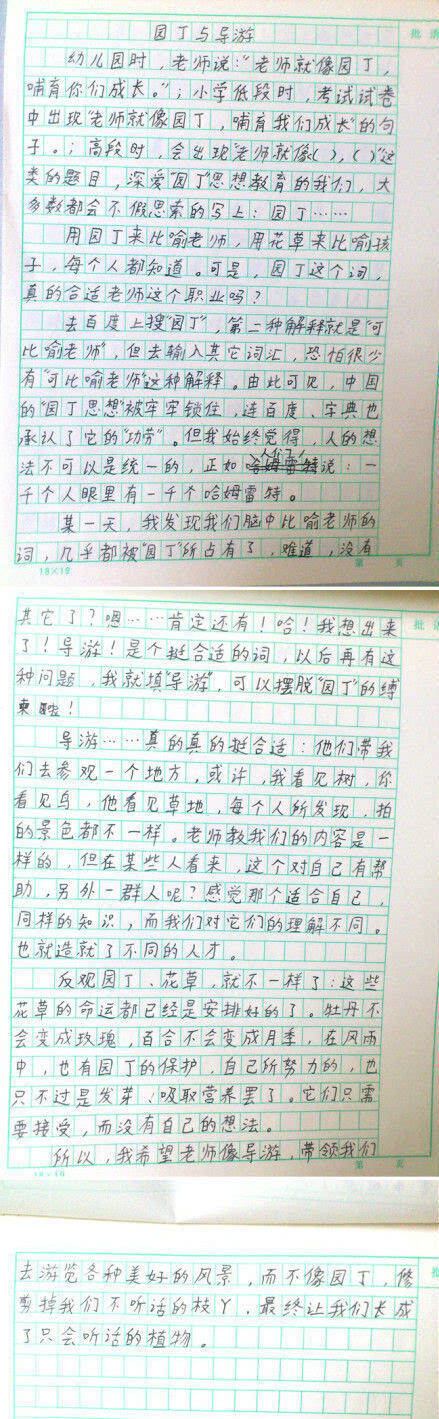 园丁与导游
幼儿园时，老师说："老师就像园丁，
哺育你们成长。"；小学低段时，考试试卷
中出现"老师就像园丁，哺育我们成长"的句
子。；高段时，会出现"老师就像( )，( )"这
类的题目，深爱"园丁"思想教育的我们，大
多数都会不假思索的写上：园丁……
用园丁来比喻老师，用花草来比喻孩
子，每个人都知道。可是，园丁这个词，
真的合适老师这个职业吗？
去百度上搜"园丁"，第二种解释就是"可
比喻老师"，但去输入其它词汇，恐怕很少
有"可比喻老师"这种解释。由此可见，中国
的"园丁思想"被牢牢锁住，连百度、字典也
承认了它的"功劳"。但我始终觉得，人的想
法不可以是统一的，正如人们说：一
千个人眼里有一千个哈姆雷特。
某一天，我发现我们脑中比喻老师的
词，几乎都被"园丁"所占有了，难道，没有
18×19
第 页
其它了？嗯……肯定还有！哈！我想出来
了！导游！是个挺合适的词，以后再有这
种问题，我就填"导游"，可以摆脱"园丁"的缚
束啦！
导游……真的真的挺合适：他们带我
们去参观一个地方，或许，我看见树，你
看见鸟，他看见草地，每个人所发现，拍
的景色都不一样。老师教我们的内容是一
样的，但在某些人看来，这个对自己有帮
助，另外一群人呢？感觉那个适合自己，
同样的知识，而我们对它们的理解不同。
也就造就了不同的人才。
反观园丁、花草，就不一样了：这些
花草的命运都已经是安排好的了。牡丹不
会变成玫瑰，百合不会变成月季，在风雨
中，也有园丁的保护，自己所努力的，也
只不过是发芽、吸取营养罢了。它们只需
要接受，而没有自己的想法。
所以，我希望老师像导游，带领我们
第 页
去游览各种美好的风景，而不像园丁，修
剪掉我们不听话的枝丫，最终让我们长成
了只会听话的植物。